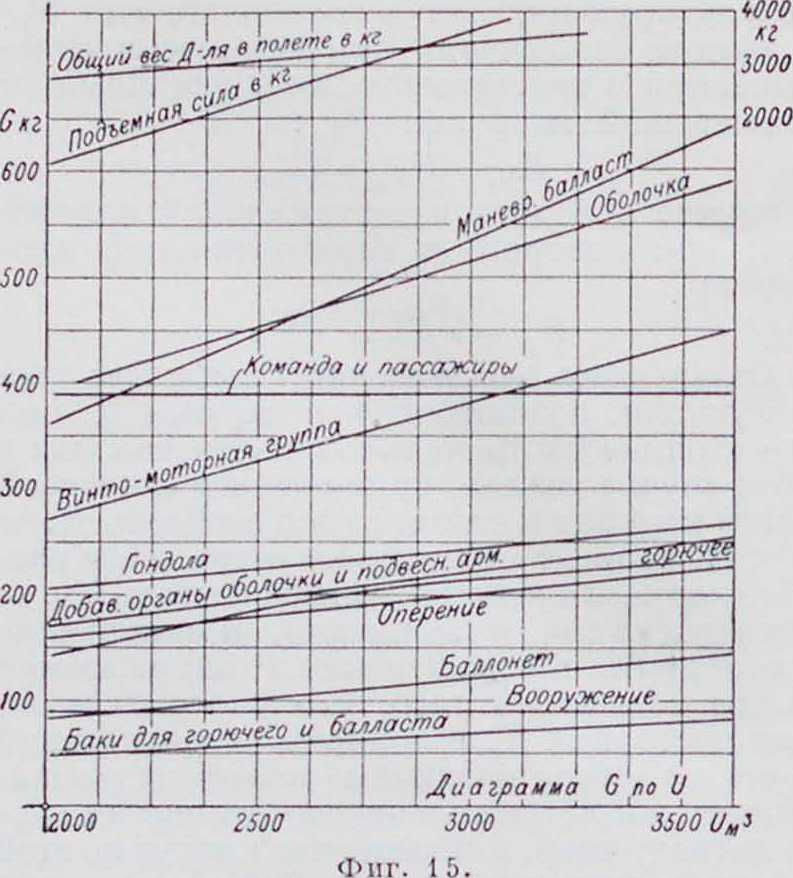 4000
кг
Общий вес Д-ля в полете в кг
3000
Подъемная сила в кг
G кг
2000
600
Маневр. балласт
Оболочка
500
Команда и пассажиры
400
Винто-моторная группа
300
Гондола
Добав. органы оболочки и подвесн. арм.
горючее
200
Оперение
Баллонет
100
Вооружение
Баки для горючего и балласта
Диаграмма G по U
2000 2500 3000 3500 Uм³
Фиг. 15.